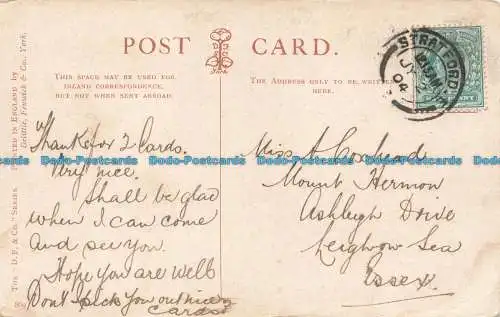 POST CARD.
THIS SPACE MAY BE USED FOR
INLAND CORRESPONDENCE,
BUT NOT WHEN SENT ABROAD.
THE ADDRESS ONLY TO BE WRITTEN
HERE.
STRATFORD
JY
04
THE "D. F. & CO." SERIES. PRINTED IN ENGLAND BY
Delittle, Fenwick & Co., York.
Thanks for 2 Cards.
Very nice.
Shall be glad
when I can come
and see you.
Hope you are well
Don't pick you out nice
cards
Miss A
Mount Hermon
Ashleigh Drive
Leigh on Sea
Essex.
Dodo-Postcards Dodo-Postcards Dodo-Postcards Dodo-Postcards Dodo-Postcards